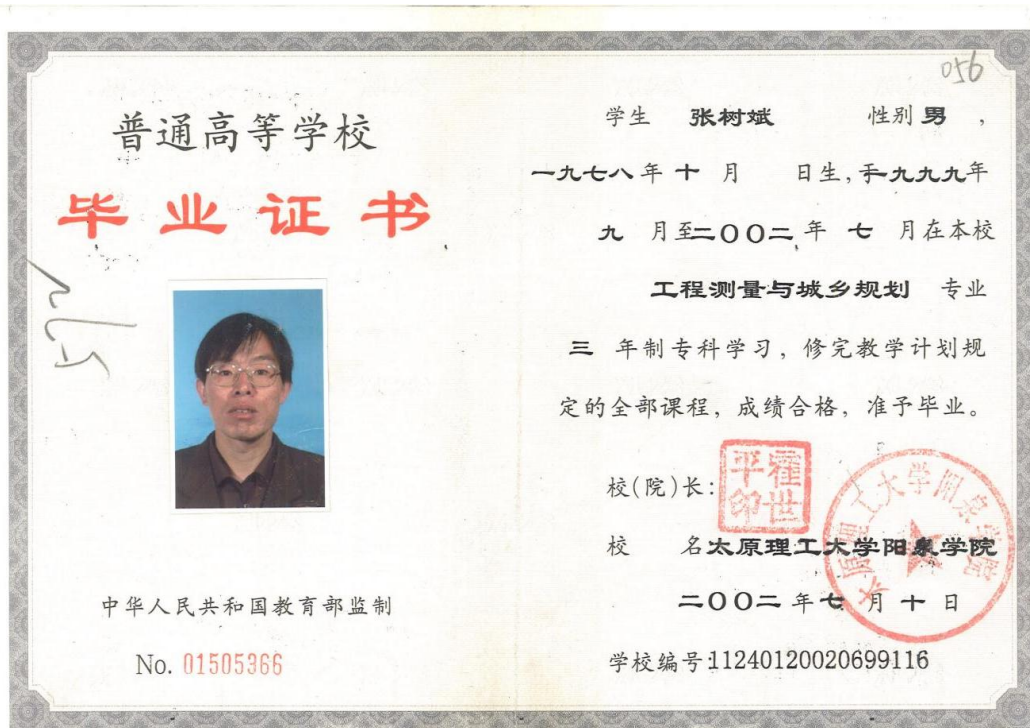 普通高等学校
毕业证书
中华人民共和国教育部监制
No. 01505366
056
学生 张树斌 性别 男 ,
一九七八年十月 日生,于一九九九年
九 月至二00二 年 七 月在本校
工程测量与城乡规划 专业
三 年制专科学习,修完教学计划规
定的全部课程,成绩合格,准予毕业。
校(院)长:
霍世平印
校 名太原理工大学阳泉学院
太原理工大学阳泉学院
二00二 年七 月 十 日
学校编号:11240120020699116